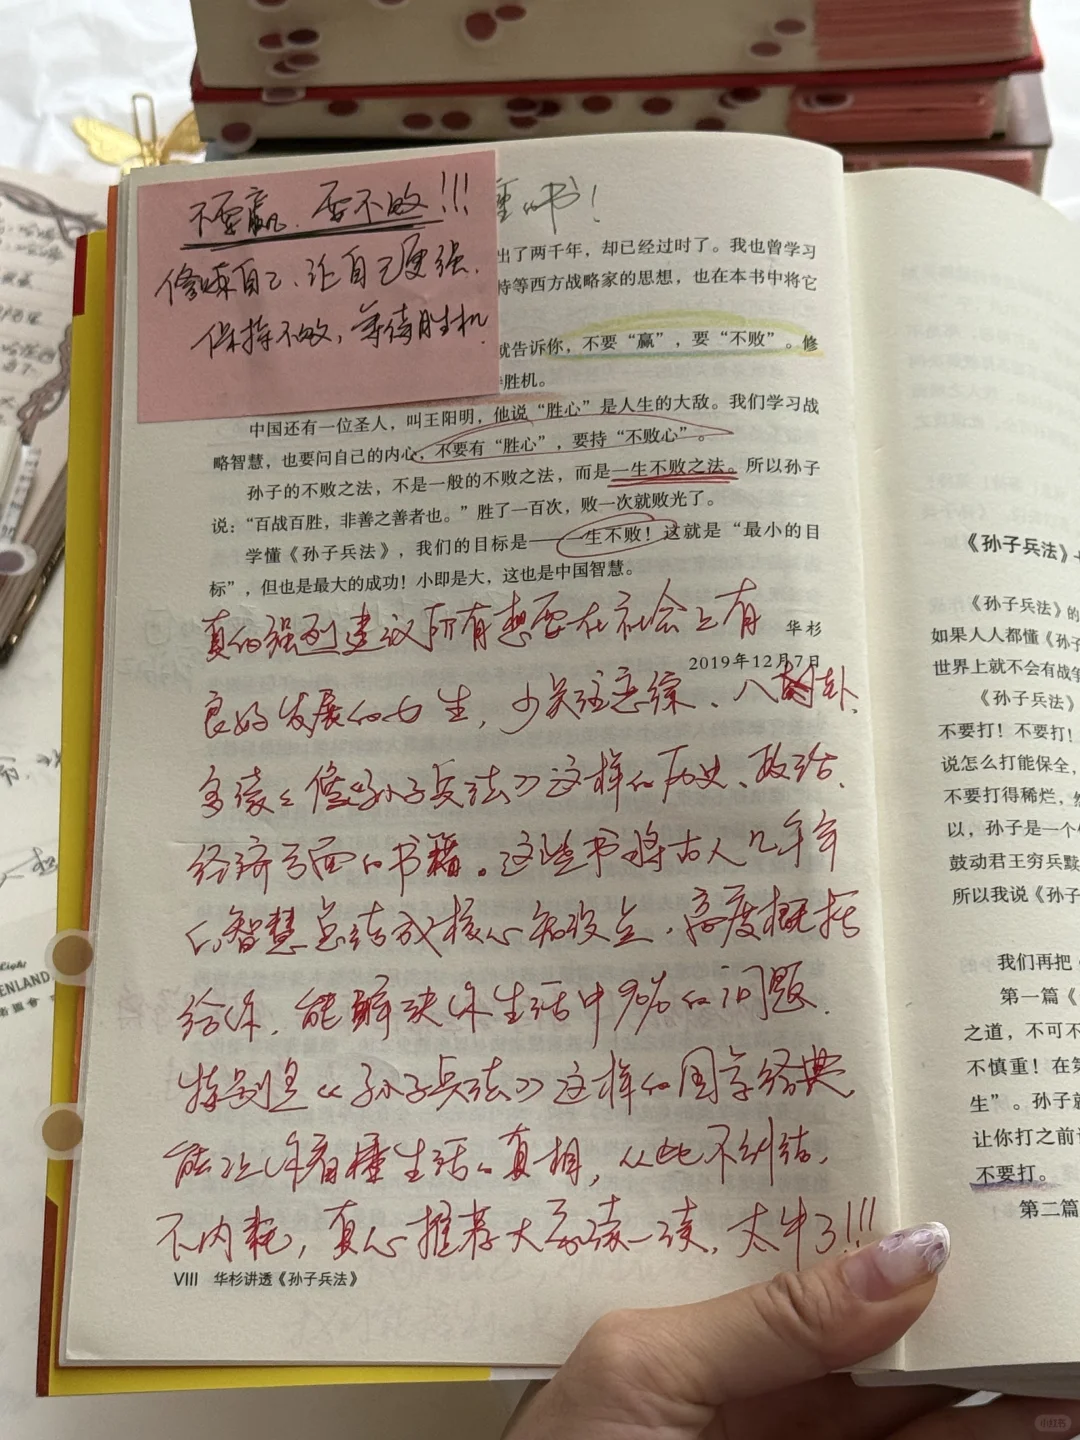 不要赢、要不败!!!
修炼自己、让自己更强、
保持不败，等待胜机
的书！
出了两千年，却已经过时了。我也曾学习
特等西方战略家的思想，也在本书中将它
就告诉你，不要“赢”，要“不败”。修
胜机。
中国还有一位圣人，叫王阳明，他说“胜心”是人生的大敌。我们学习战
略智慧，也要问自己的内心，不要有“胜心”，要持“不败心”。
孙子的不败之法，不是一般的不败之法，而是一生不败之法。所以孙子
说：“百战百胜，非善之善者也。”胜了一百次，败一次就败光了。
学懂《孙子兵法》，我们的目标是——一生不败！这就是“最小的目
标”，但也是最大的成功！小即是大，这也是中国智慧。
华杉
2019年12月7日
真的强烈建议所有想要在社会上有
良好发展的女生，少关注恋综、八卦、
多读读像《孙子兵法》这样的历史、政治、
经济方面的书籍。这些书将古人几千年
的智慧总结成核心知识点，高度概括
给你，能解决你生活中90%的问题.
特别是《孙子兵法》这样的国学经典，
能让你看懂生活的真相，从此不纠结，
不内耗，真心推荐大家读一读，太牛了!!!
VIII 华杉讲透《孙子兵法》
《孙子兵法》
《孙子兵法》的
如果人人都懂《孙子
世界上就不会有战争
《孙子兵法》
不要打！不要打！
说怎么打能保全，
不要打得稀烂，
以，孙子是一个
鼓动君王穷兵黩
所以我说《孙子
我们再把《
第一篇《
之道，不可不
不慎重！在第
生”。孙子就
让你打之前
不要打。
第二篇
ENLAND,
小红书